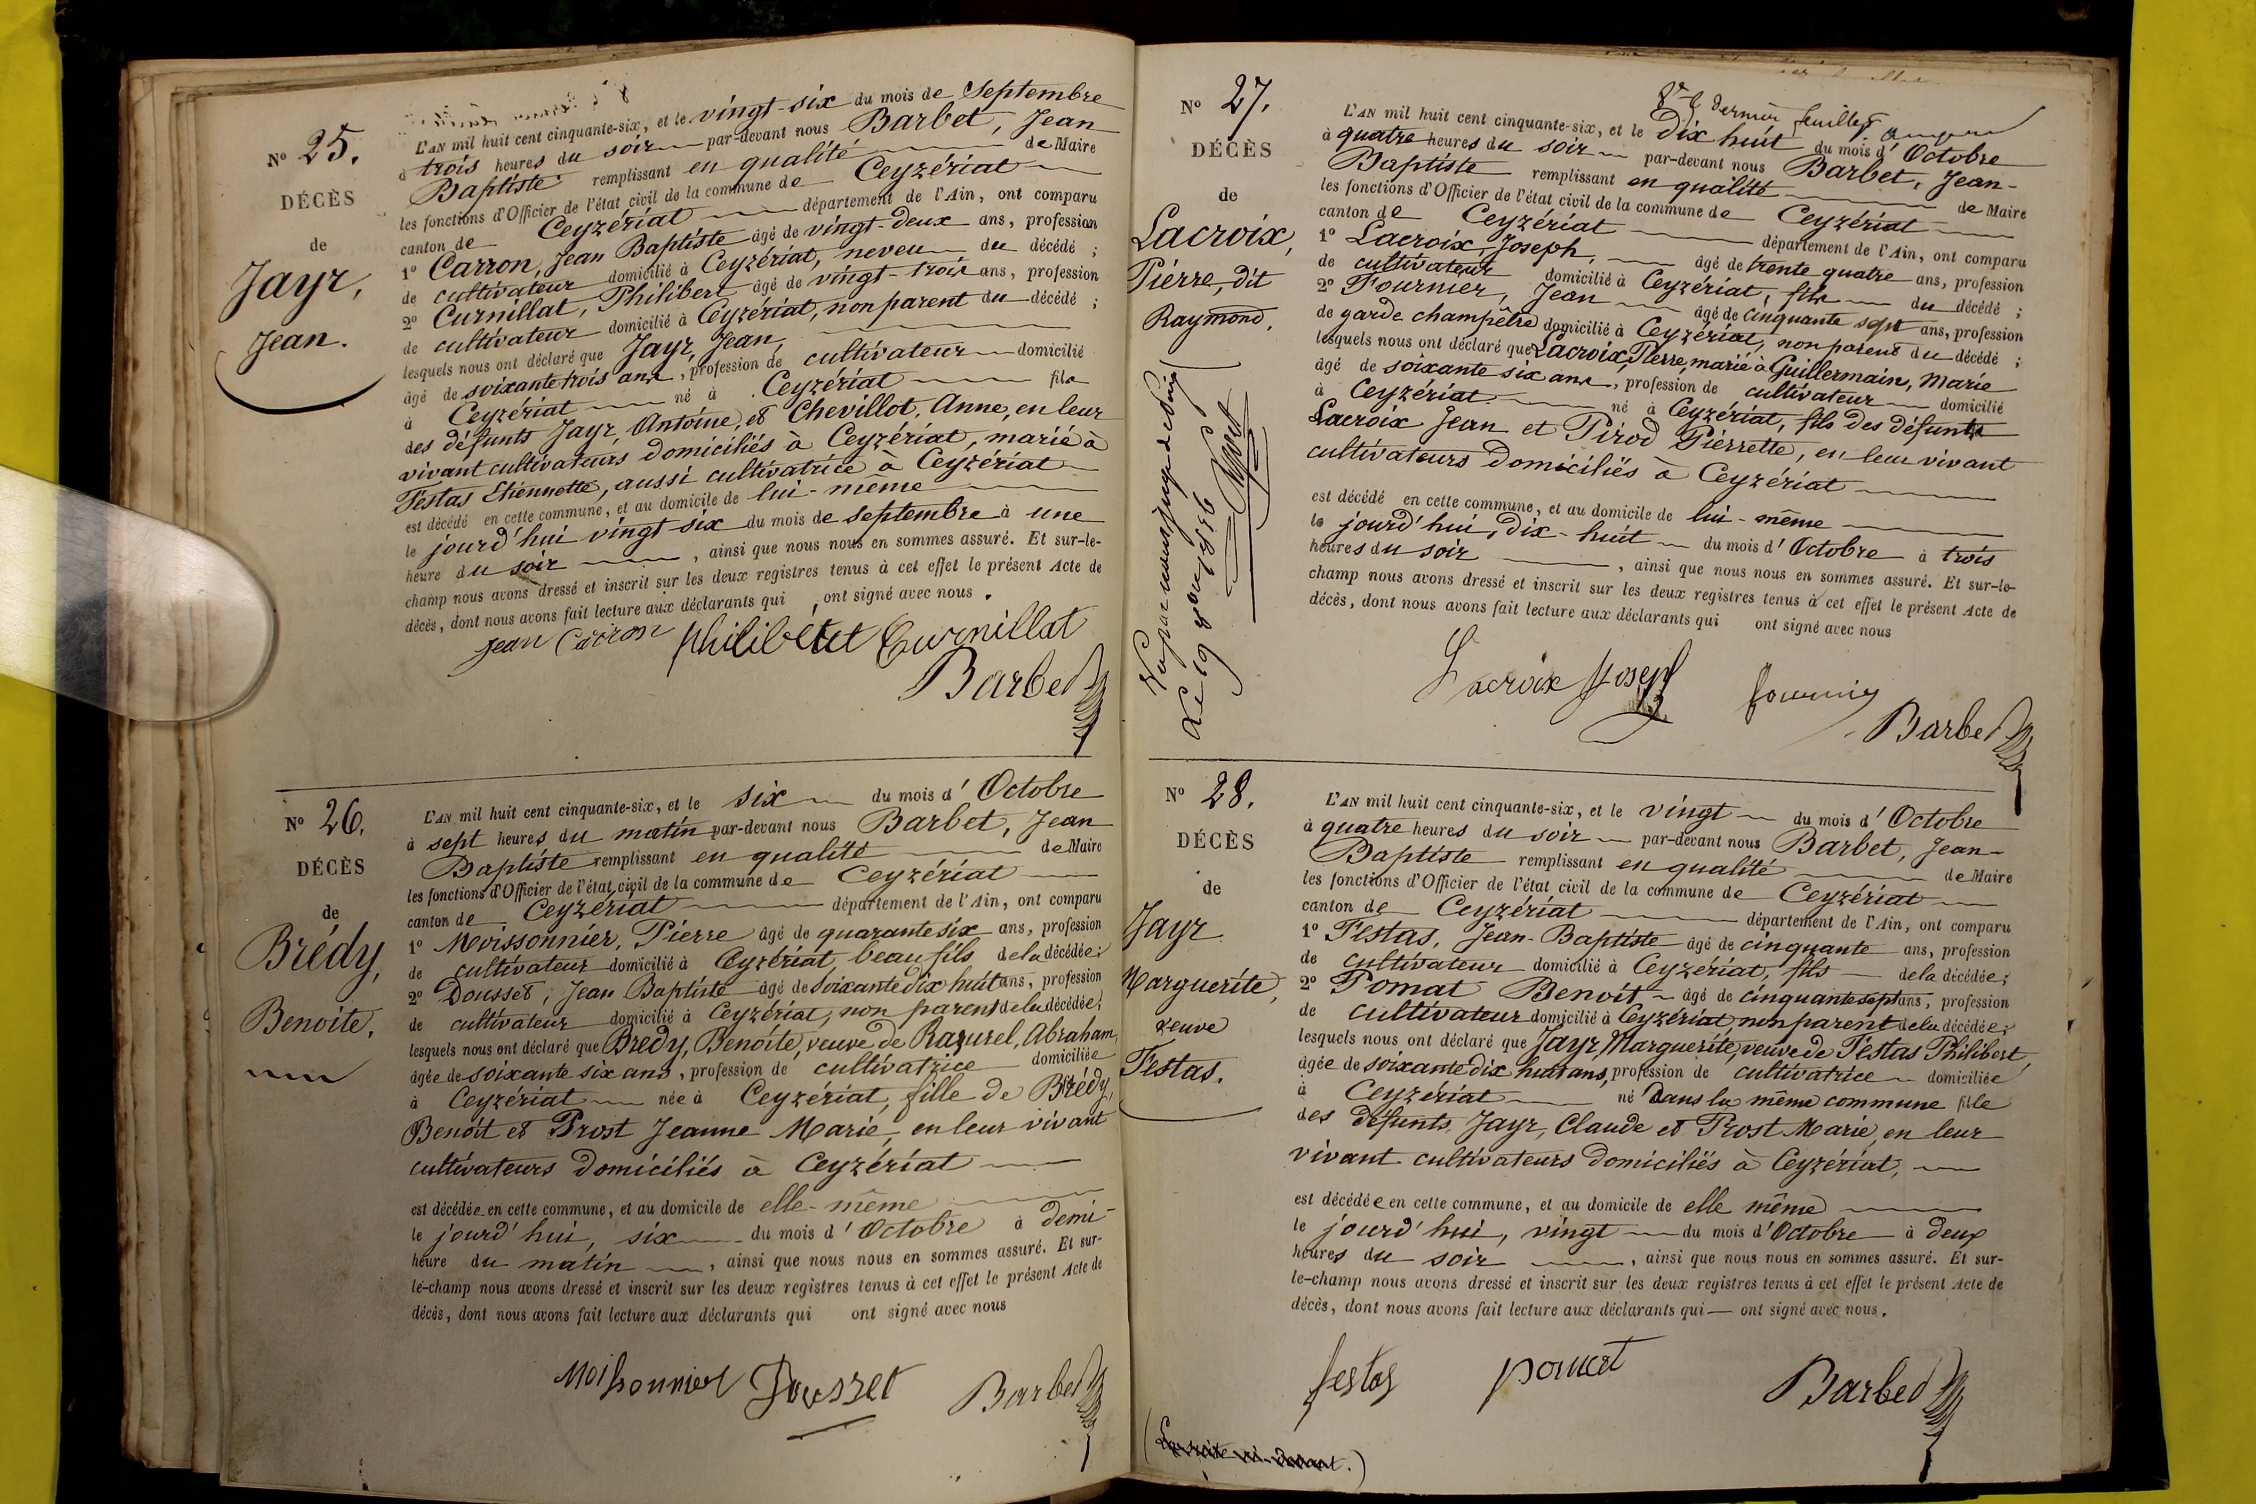 Nº 25.
DÉCÈS
de
Jayr,
Jean.
L'AN mil huit cent cinquante-six, et le vingt-six du mois de Septembre
à trois heures du soir par-devant nous Barbet, Jean
Baptiste remplissant en qualité de Maire
les fonctions d'Officier de l'état civil de la commune de Ceyzériat
canton de Ceyzériat département de l'Ain, ont comparu
1º Carron, Jean Baptiste âgé de vingt-deux ans, profession
de cultivateur domicilié à Ceyzériat, neveu du décédé ;
2º Curnillat, Philibert âgé de vingt-trois ans, profession
de cultivateur domicilié à Ceyzériat, non parent du décédé ;
lesquels nous ont déclaré que Jayr, Jean,
âgé de soixante trois ans, profession de cultivateur domicilié
à Ceyzériat né à Ceyzériat fils
des défunts Jayr, Antoine, et Chevillot, Anne, en leur
vivant cultivateurs domiciliés à Ceyzériat, marié à
Festas Etiennette, aussi cultivatrice à Ceyzériat
est décédé en cette commune, et au domicile de lui-même
le jourd'hui vingt six du mois de septembre à une
heure du soir, ainsi que nous nous en sommes assuré. Et sur-le-
champ nous avons dressé et inscrit sur les deux registres tenus à cet effet le présent Acte de
décès, dont nous avons fait lecture aux déclarants qui ont signé avec nous.
Jean Carron Philibert Curnillat
Barbet
Nº 26.
DÉCÈS
de
Brédy,
Benoite.
L'AN mil huit cent cinquante-six, et le six du mois d'Octobre
à sept heures du matin par-devant nous Barbet, Jean
Baptiste remplissant en qualité de Maire
les fonctions d'Officier de l'état civil de la commune de Ceyzériat
canton de Ceyzériat département de l'Ain, ont comparu
1º Moissonnier, Pierre âgé de quarante six ans, profession
de cultivateur domicilié à Ceyzériat, beau fils de la décédée;
2º Dousset, Jean Baptiste âgé de soixante dix huit ans, profession
de cultivateur domicilié à Ceyzériat, non parent de la décédée;
lesquels nous ont déclaré que Brédy, Benoite, veuve de Razurel, Abraham
âgée de soixante six ans, profession de cultivatrice domiciliée
à Ceyzériat née à Ceyzériat, fille de Brédy,
Benoit et Prost Jeanne Marie, en leur vivant
cultivateurs domiciliés à Ceyzériat
est décédée en cette commune, et au domicile de elle-même
le jourd'hui, six du mois d'Octobre à demi-
heure du matin, ainsi que nous nous en sommes assuré. Et sur-
le-champ nous avons dressé et inscrit sur les deux registres tenus à cet effet le présent Acte de
décès, dont nous avons fait lecture aux déclarants qui ont signé avec nous
Moissonnier Dousset Barbet
Nº 27.
DÉCÈS
de
Lacroix,
Pierre, dit
Raymond.
Vu par nous juge de Paix
Le 19 8bre 1856
dernier feuillet
L'AN mil huit cent cinquante-six, et le dix huit du mois d'Octobre
à quatre heures du soir par-devant nous Barbet, Jean-
Baptiste remplissant en qualité de Maire
les fonctions d'Officier de l'état civil de la commune de Ceyzériat
canton de Ceyzériat département de l'Ain, ont comparu
1º Lacroix, Joseph, âgé de trente quatre ans, profession
de cultivateur domicilié à Ceyzériat, fils du décédé ;
2º Fournier, Jean âgé de cinquante sept ans, profession
de garde champêtre domicilié à Ceyzériat, non parent du décédé ;
lesquels nous ont déclaré que Lacroix, Pierre, marié à Guillermain, Marie
âgé de soixante six ans, profession de cultivateur domicilié
à Ceyzériat né à Ceyzériat, fils des défunts
Lacroix Jean et Pirod Pierrette, en leur vivant
cultivateurs domiciliés à Ceyzériat
est décédé en cette commune, et au domicile de lui-même
le jourd'hui, dix-huit du mois d'Octobre à trois
heures du soir, ainsi que nous nous en sommes assuré. Et sur-le-
champ nous avons dressé et inscrit sur les deux registres tenus à cet effet le présent Acte de
décès, dont nous avons fait lecture aux déclarants qui ont signé avec nous
Lacroix Joseph fournier
Barbet
Nº 28.
DÉCÈS
de
Jayr
Marguerite,
veuve
Festas.
L'AN mil huit cent cinquante-six, et le vingt du mois d'Octobre
à quatre heures du soir par-devant nous Barbet, Jean-
Baptiste remplissant en qualité de Maire
les fonctions d'Officier de l'état civil de la commune de Ceyzériat
canton de Ceyzériat département de l'Ain, ont comparu
1º Festas, Jean-Baptiste âgé de cinquante ans, profession
de cultivateur domicilié à Ceyzériat, fils de la décédée;
2º Pomat Benoit âgé de cinquante sept ans, profession
de cultivateur domicilié à Ceyzériat, non parent de la décédée;
lesquels nous ont déclaré que Jayr, Marguerite, veuve de Festas Philibert,
âgée de soixante dix huit ans, profession de cultivatrice domiciliée
à Ceyzériat né dans la même commune fille
des défunts Jayr, Claude et Prost Marie, en leur
vivant cultivateurs domiciliés à Ceyzériat,
est décédée en cette commune, et au domicile de elle même
le jourd'hui, vingt du mois d'Octobre à deux
heures du soir, ainsi que nous nous en sommes assuré. Et sur-
le-champ nous avons dressé et inscrit sur les deux registres tenus à cet effet le présent Acte de
décès, dont nous avons fait lecture aux déclarants qui ont signé avec nous.
festas pomat Barbet